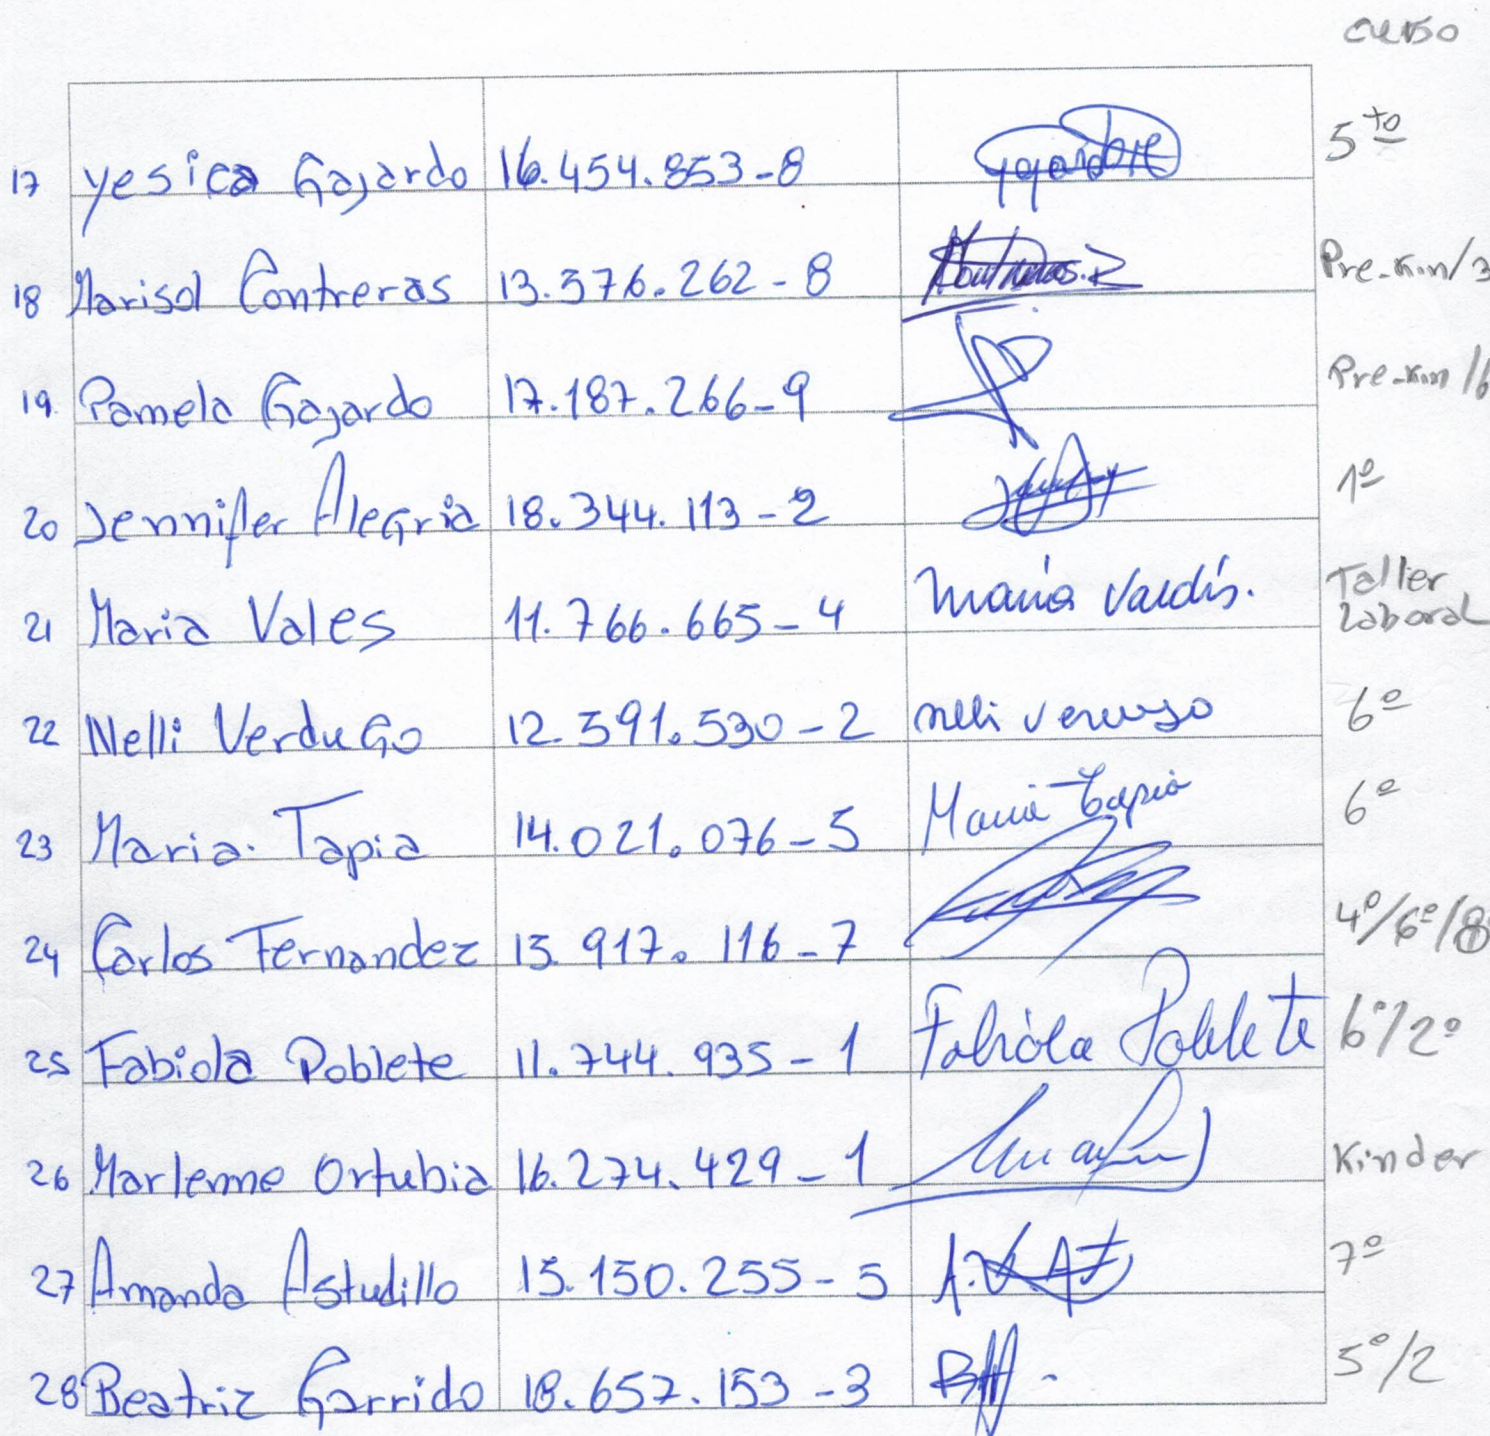 curso
17 yesica Gajardo 16.454.853-8 5to
18 Marisol Contreras 13.576.262-8 Contreras.R Pre-Kin/3
19 Pamela Gajardo 17.187.266-9 Pre-Kin/6
20 Jennifer Alegria 18.344.113-2 1º
21 Maria Vales 11.766.665-4 Maria Valdés. Taller Laboral
22 Nelli Verdugo 12.591.530-2 nelli verdugo 6º
23 Maria. Tapia 14.021.076-5 Maria Tapia 6º
24 Carlos Fernandez 15.917.116-7 4º/6º/8
25 Fabiola Poblete 11.744.935-1 Fabiola Poblete 6º/2º
26 Marlenne Ortubia 16.274.429-1 Kinder
27 Amanda Astudillo 15.150.255-5 7º
28 Beatriz Garrido 18.657.153-3 5º/2